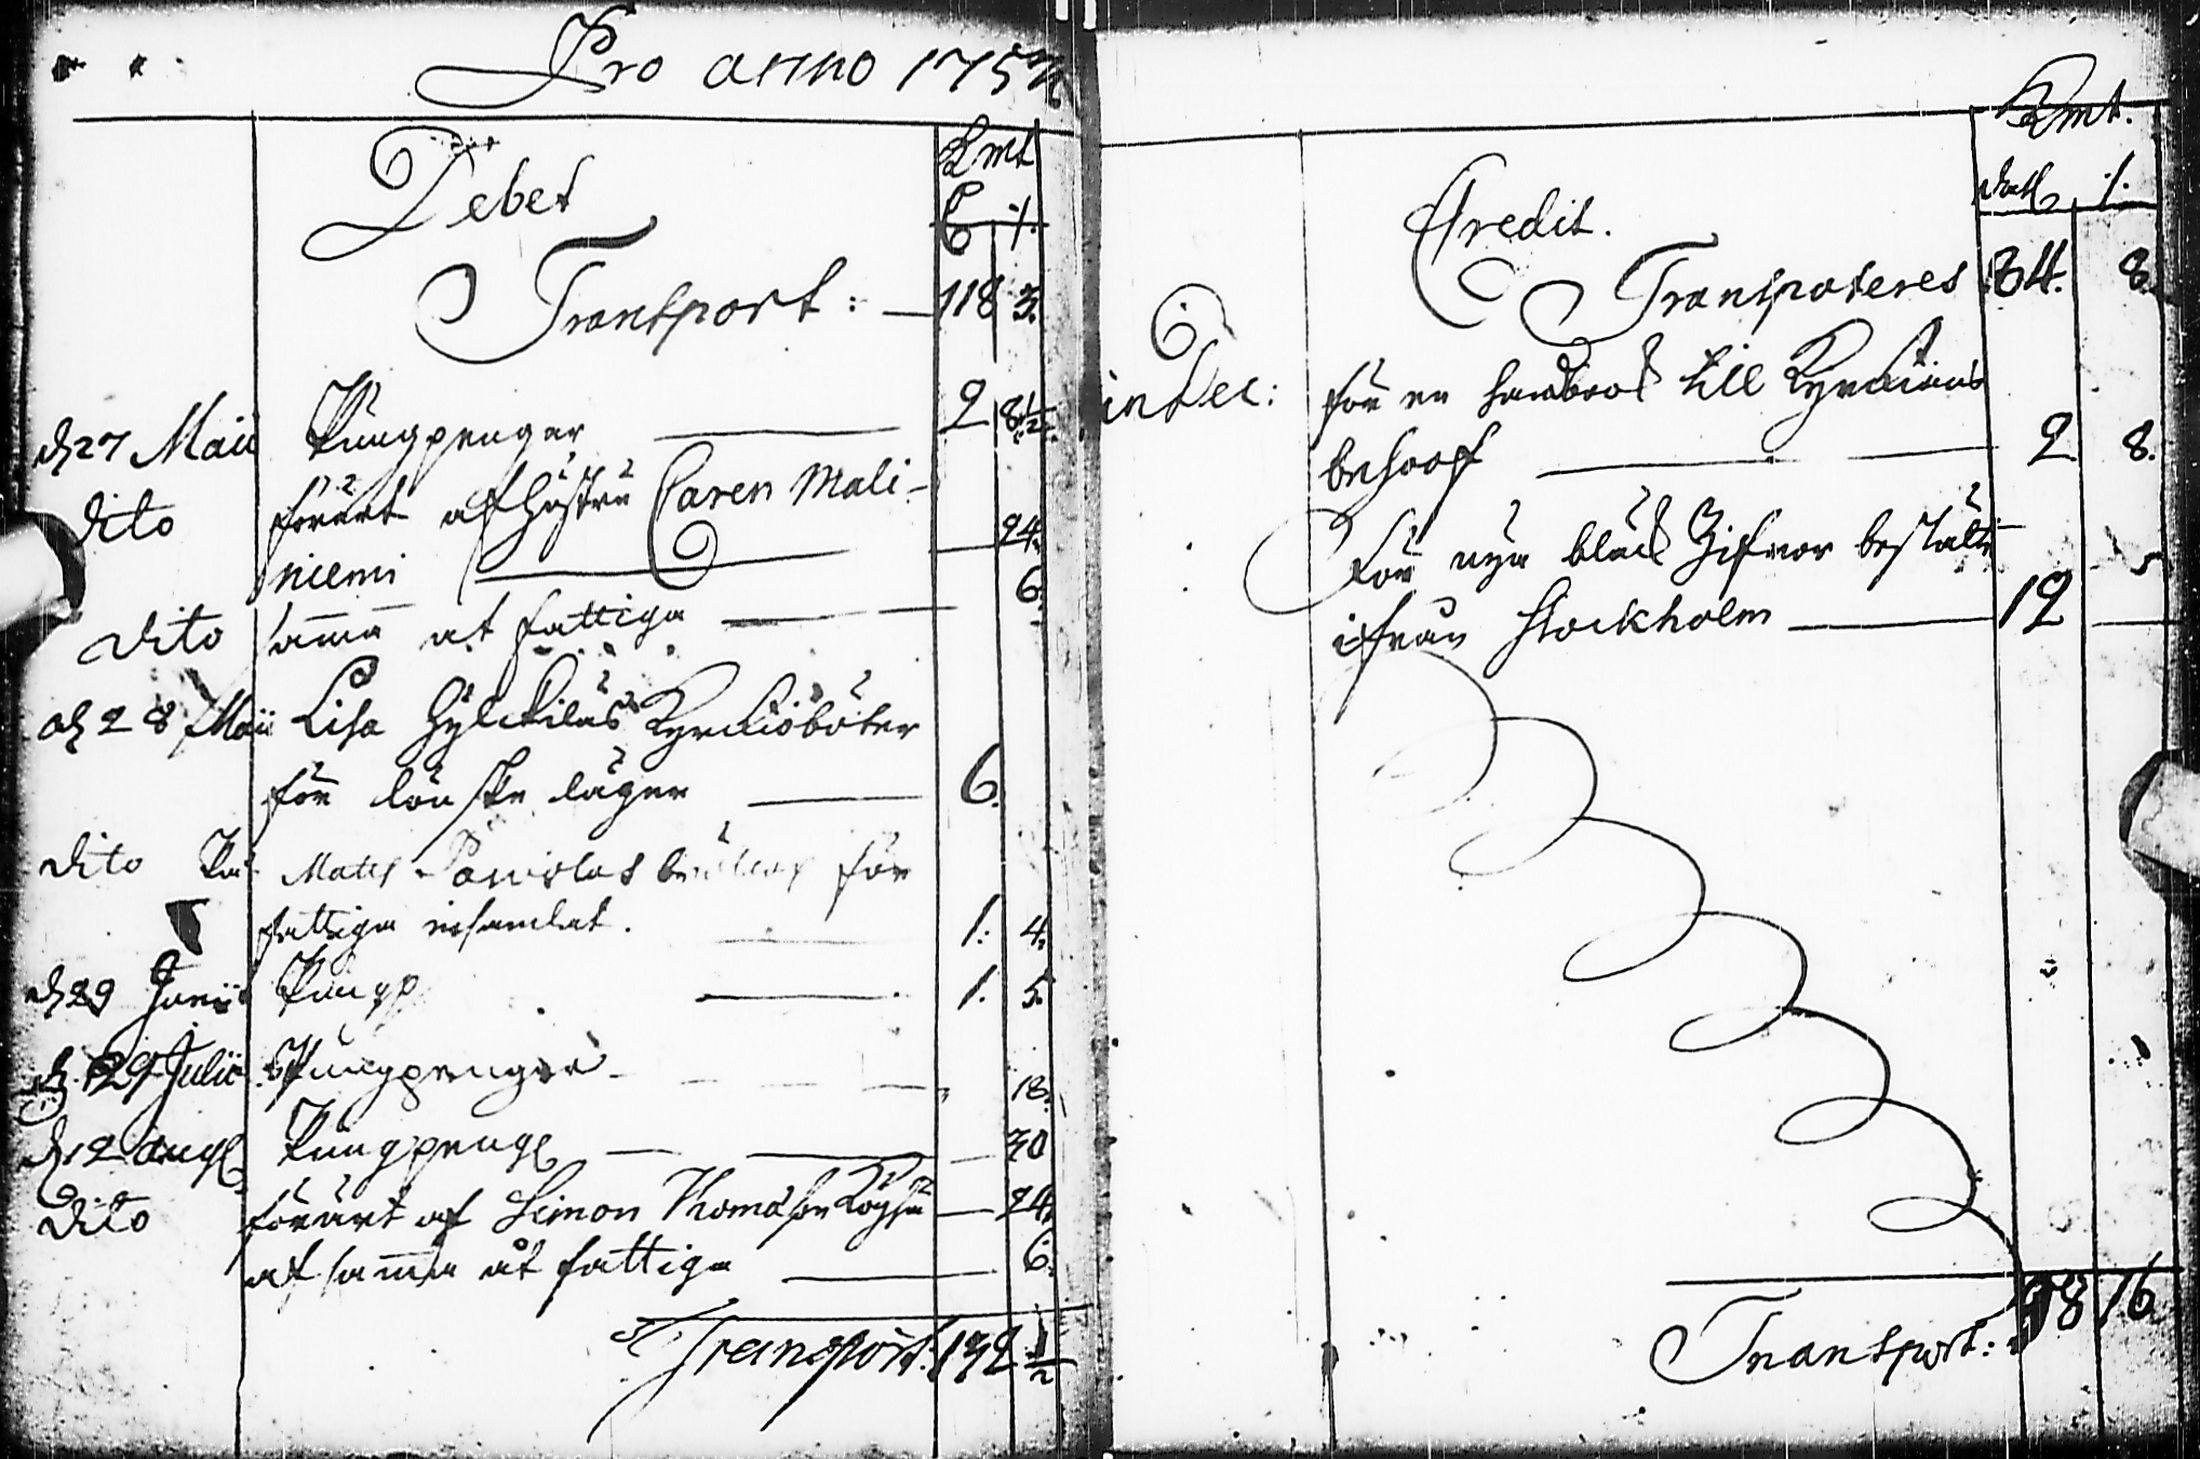 Pro anno 175
Debet
Kmt
Transport: 118 3.
d 27 Maii Pungpengar 2 8 1/2
dito förärt af hustru Caren Mali-
niemi 24.
dito samma at fattiga 6.
d 28 Maii Lisa Kyrckiobôter
för löнske läger 6.
dito På Mats brôllop för
fattiga insamlat. 1. 4.
d 29 Junii Pungp 1. 5.
d 29 Julii Pungpengar 18.
d 12 Aug Pungpeng 30
dito förärt af Simon Thomasson 24.
af samma åt fattiga 6.
Transport: 132 1/2
Kmt.
Credit.
Transporteres 84. 8.
in Dec: för en handbook till Kyrckians
behoof 2 8.
För nya bläck bestälte
ifrån Stockholm 12
Transport: 98 16